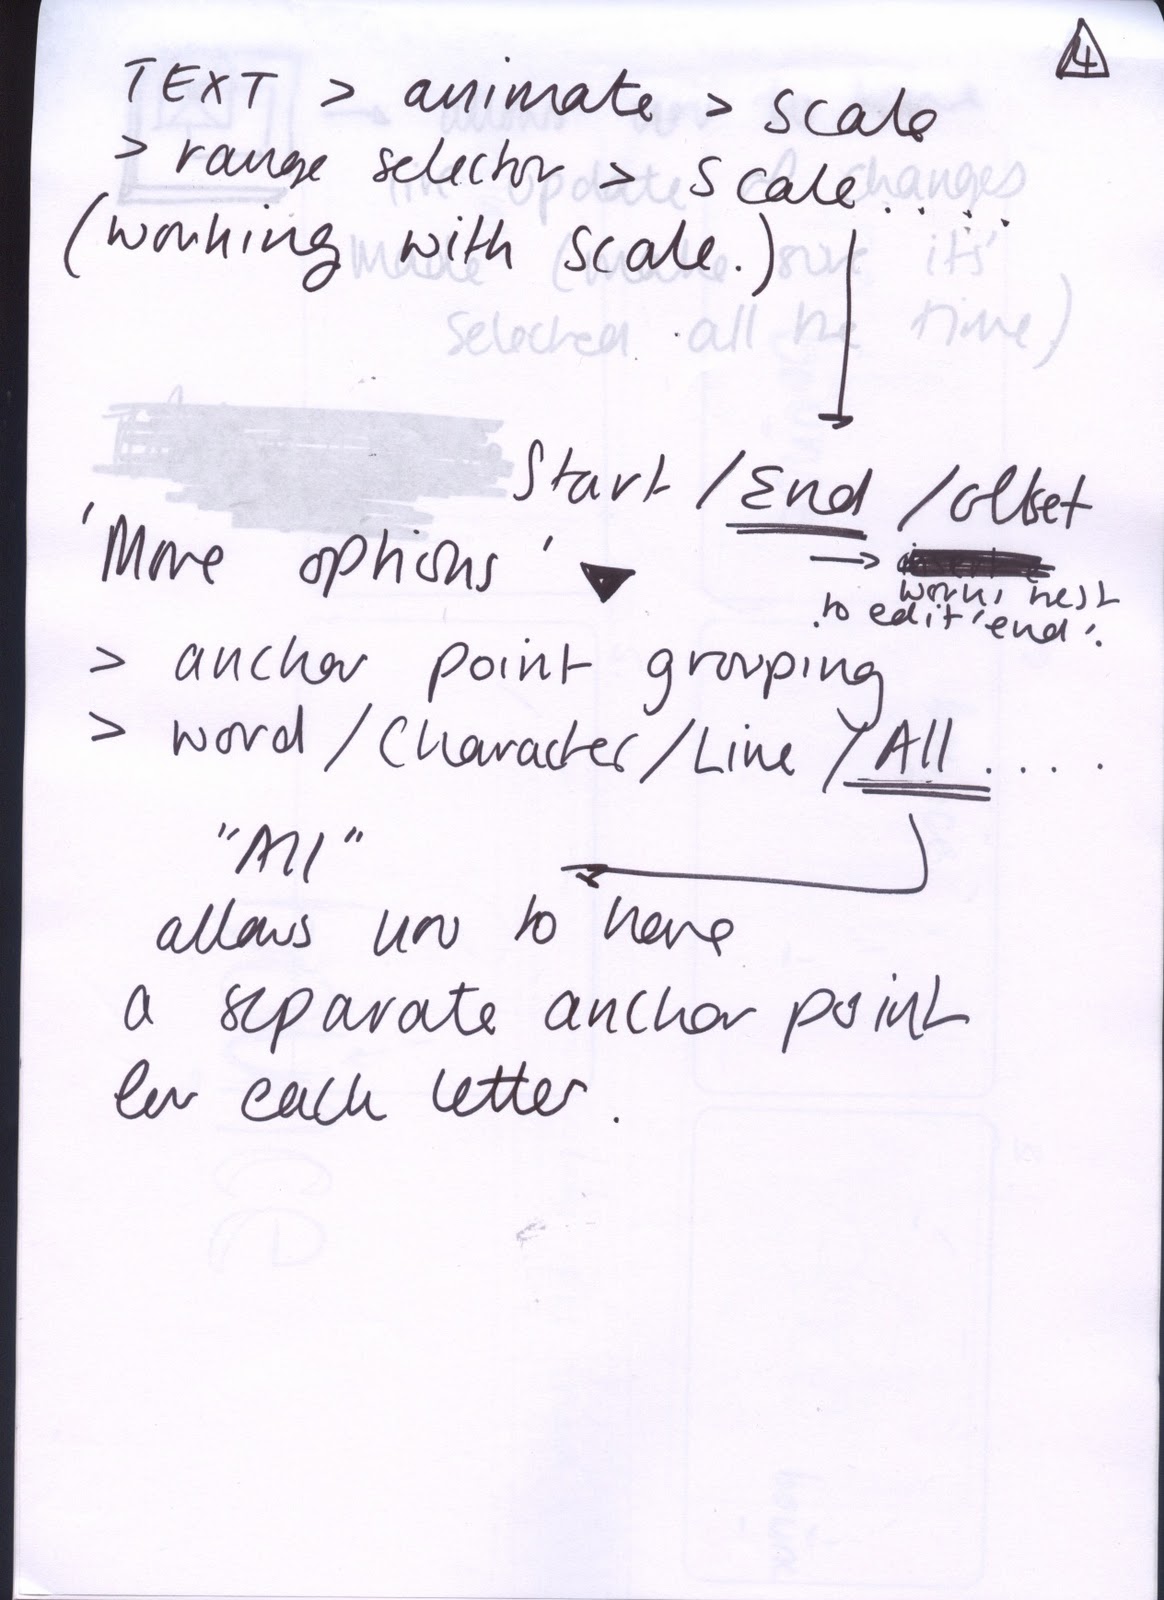 4
TEXT > animate > scale
> range selector > scale.....
(working with scale.)
Start / End / offset
'More options'
→ works best
to edit 'end'.
> anchor point grouping
> word / Character / Line / All ....
"All"
allows you to have
a separate anchor point
for each letter.